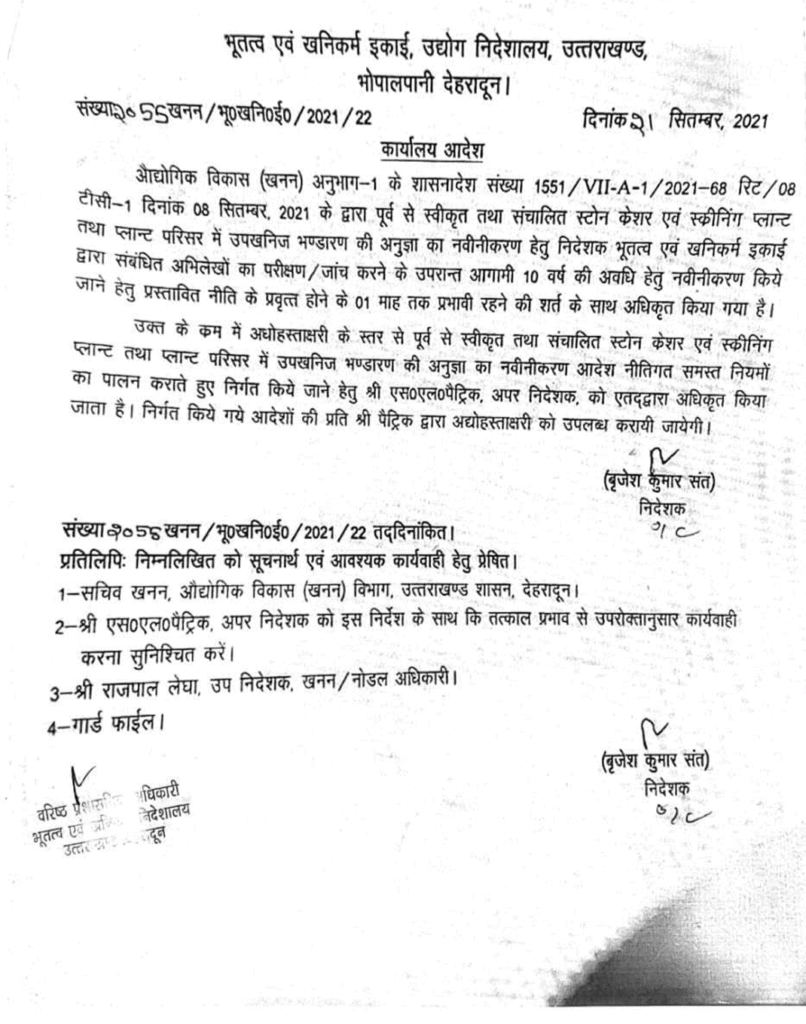 भूतत्व एवं खनिकर्म इकाई, उद्योग निदेशालय, उत्तराखण्ड,
भोपालपानी देहरादून।
संख्या२०55खनन/भू0खनि0ई0/2021/22 दिनांक२1 सितम्बर, 2021
कार्यालय आदेश
औद्योगिक विकास (खनन) अनुभाग-1 के शासनादेश संख्या 1551/VII-A-1/2021-68 रिट/08
टीसी-1 दिनांक 08 सितम्बर, 2021 के द्वारा पूर्व से स्वीकृत तथा संचालित स्टोन केशर एवं स्कीनिंग प्लान्ट
तथा प्लान्ट परिसर में उपखनिज भण्डारण की अनुज्ञा का नवीनीकरण हेतु निदेशक भूतत्व एवं खनिकर्म इकाई
द्वारा संबंधित अभिलेखों का परीक्षण/जांच करने के उपरान्त आगामी 10 वर्ष की अवधि हेतु नवीनीकरण किये
जाने हेतु प्रस्तावित नीति के प्रवृत्त होने के 01 माह तक प्रभावी रहने की शर्त के साथ अधिकृत किया गया है।
उक्त के कम में अधोहस्ताक्षरी के स्तर से पूर्व से स्वीकृत तथा संचालित स्टोन केशर एवं स्कीनिंग
प्लान्ट तथा प्लान्ट परिसर में उपखनिज भण्डारण की अनुज्ञा का नवीनीकरण आदेश नीतिगत समस्त नियमों
का पालन कराते हुए निर्गत किये जाने हेतु श्री एस0एल0पैट्रिक, अपर निदेशक, को एतद्द्वारा अधिकृत किया
जाता है। निर्गत किये गये आदेशों की प्रति श्री पैट्रिक द्वारा अद्योहस्ताक्षरी को उपलब्ध करायी जायेगी।
(बृजेश कुमार संत)
निदेशक
संख्या२०5 खनन/भू0खनि0ई0/2021/22 तद्दिनांकित।
प्रतिलिपिः निम्नलिखित को सूचनार्थ एवं आवश्यक कार्यवाही हेतु प्रेषित।
1-सचिव खनन, औद्योगिक विकास (खनन) विभाग, उत्तराखण्ड शासन, देहरादून।
2-श्री एस0एल0पैट्रिक, अपर निदेशक को इस निर्देश के साथ कि तत्काल प्रभाव से उपरोक्तानुसार कार्यवाही
करना सुनिश्चित करें।
3-श्री राजपाल लेघा, उप निदेशक, खनन/नोडल अधिकारी।
4-गार्ड फाईल।
(बृजेश कुमार संत)
निदेशक
वरिष्ठ
भूतत्व एवं निदेशालय